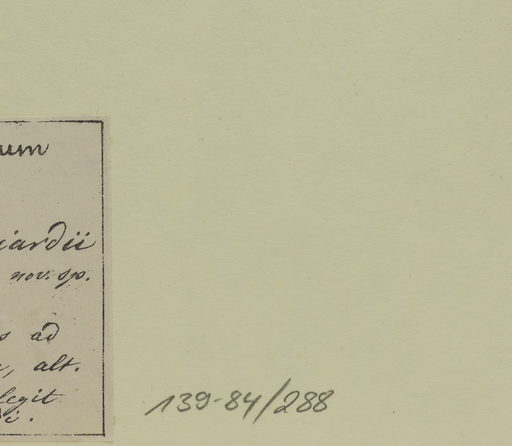 um
jardii
nov. sp.
s ad
, alt.
legit
i.
139-84/288